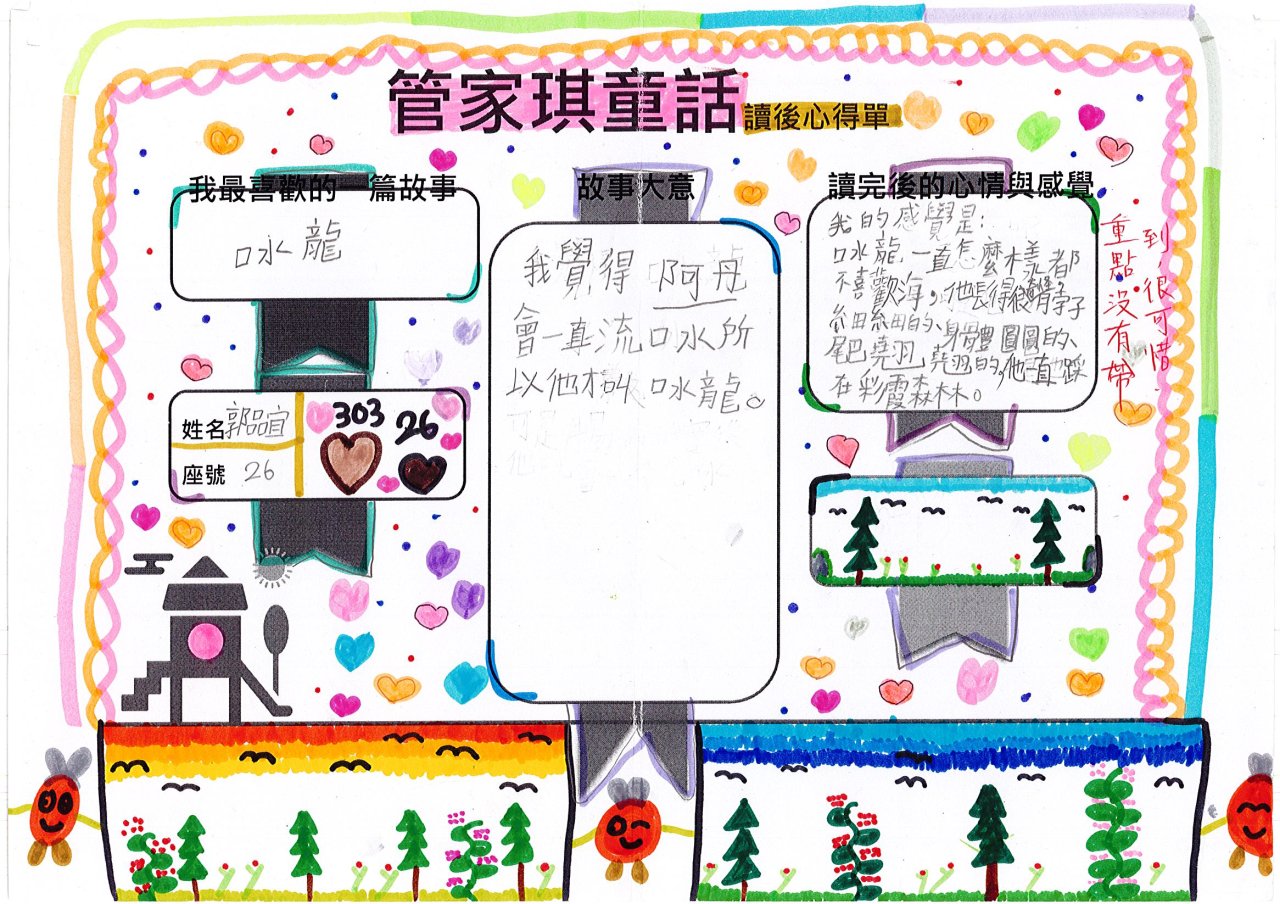 管家琪童話
讀後心得單
我最喜歡的一篇故事
口水龍
姓名 郭品宜
303
26
座號 26
故事大意
我覺得 阿丹
會一直流口水所
以他才叫 口水龍。
讀完後的心情與感覺
我的感覺是:
口水龍一直怎麼樣都
不喜歡海,他長得很青脖子
細細的、身體圓圓的、
尾巴翹翹的,他直踩
在彩霞森林。
重點沒有帶
到,很可惜